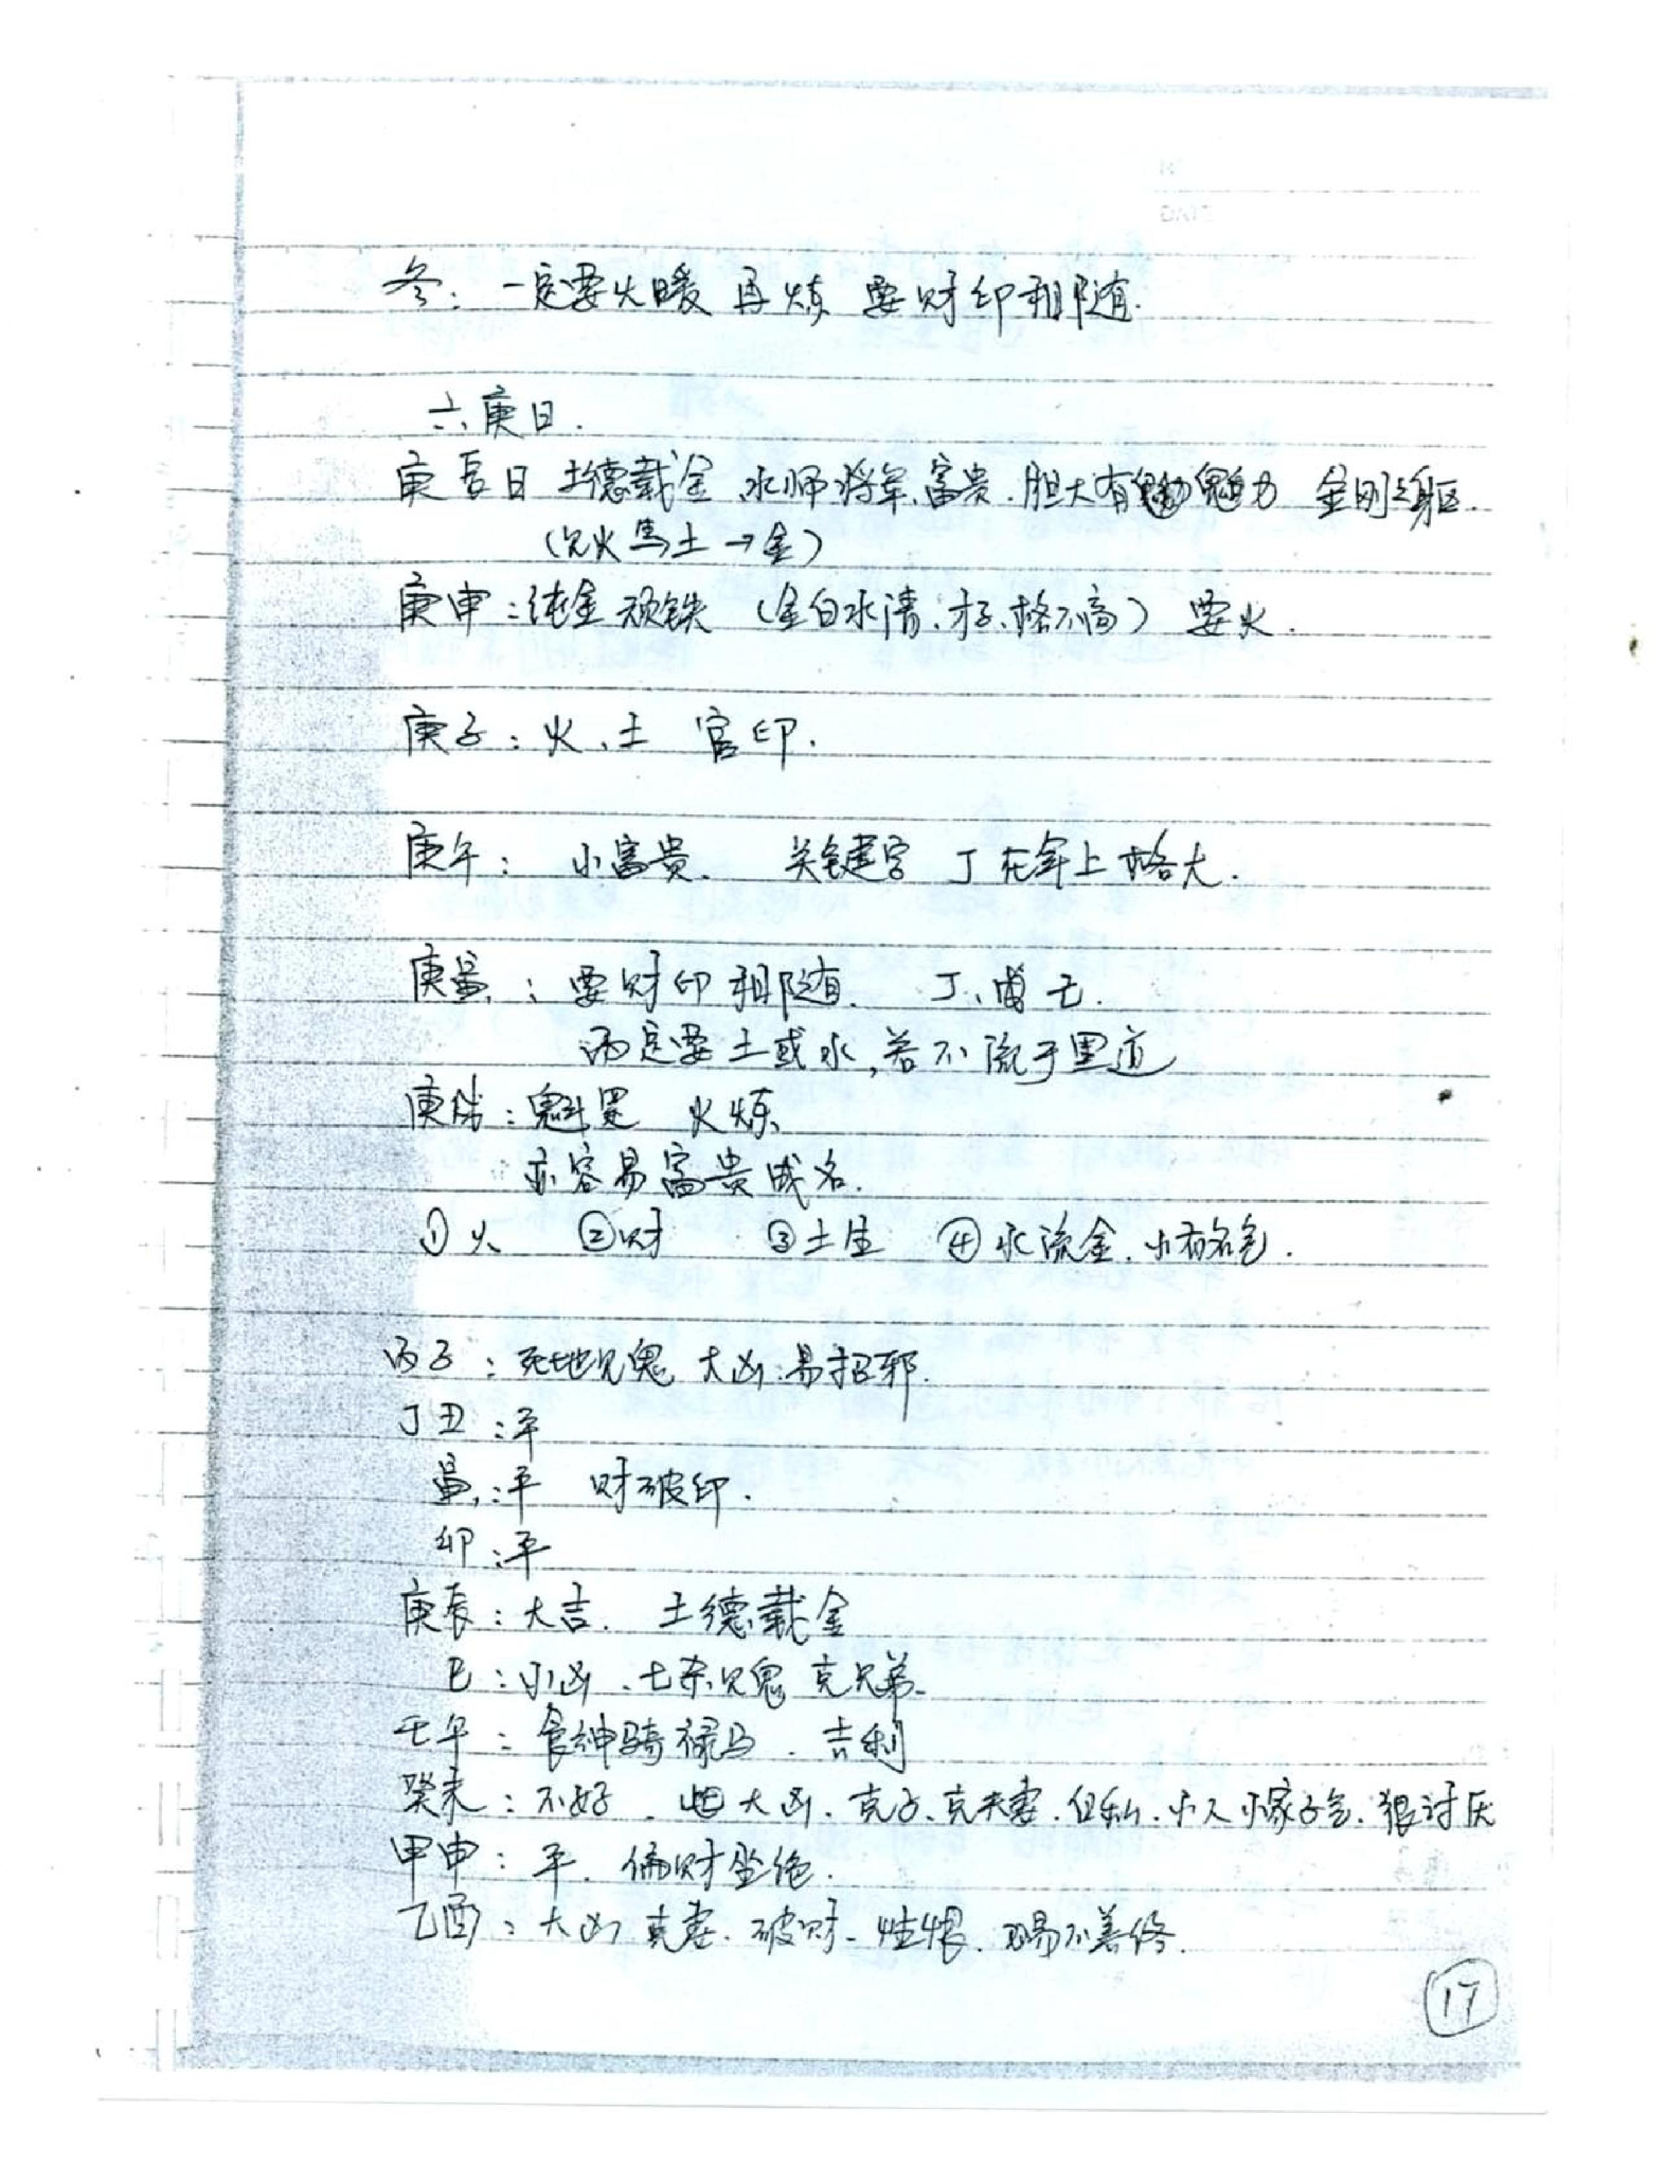 冬：一定要火暖 再炼 要财印相随.
六庚日.
庚辰日 土德载金 水师将军.富贵.胆大有魄力 金刚之躯.
(见火焉土→金)
庚申：纯金 顽铁 (金白水清.才子.格不高) 要火.
庚子：火、土 官印.
庚午：小富贵. 关键字 丁在年上格大.
庚寅：要财印相随. 丁、戊
丙定要土或水,若不流于黑道
庚戌：魁罡 火炼
亦容易富贵成名.
①火 ②财 ③土生 ④水流金.小有名
丙子：死地见鬼 大凶.易招邪.
丁丑：平
寅：平 财破印.
卯：平
庚辰：大吉. 土德载金
巳：小凶.七杀见鬼 克兄弟.
壬午：食神骑禄马.吉利
癸未：不好. 大凶.克子.克夫妻.自私.小人小家子气.狠讨厌
甲申：平.偏财坐绝.
乙酉：大凶 克妻.破财.性恨. 不善终.
17